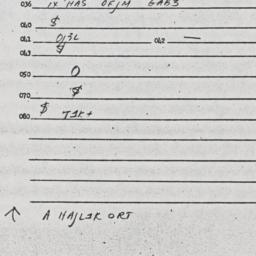 036 IX HAS OFIM GABS
040 $
041 OJ3L 042 —
043 $
050 O
070 $
080 $ TIK+
↑ A HAJLIK ORT